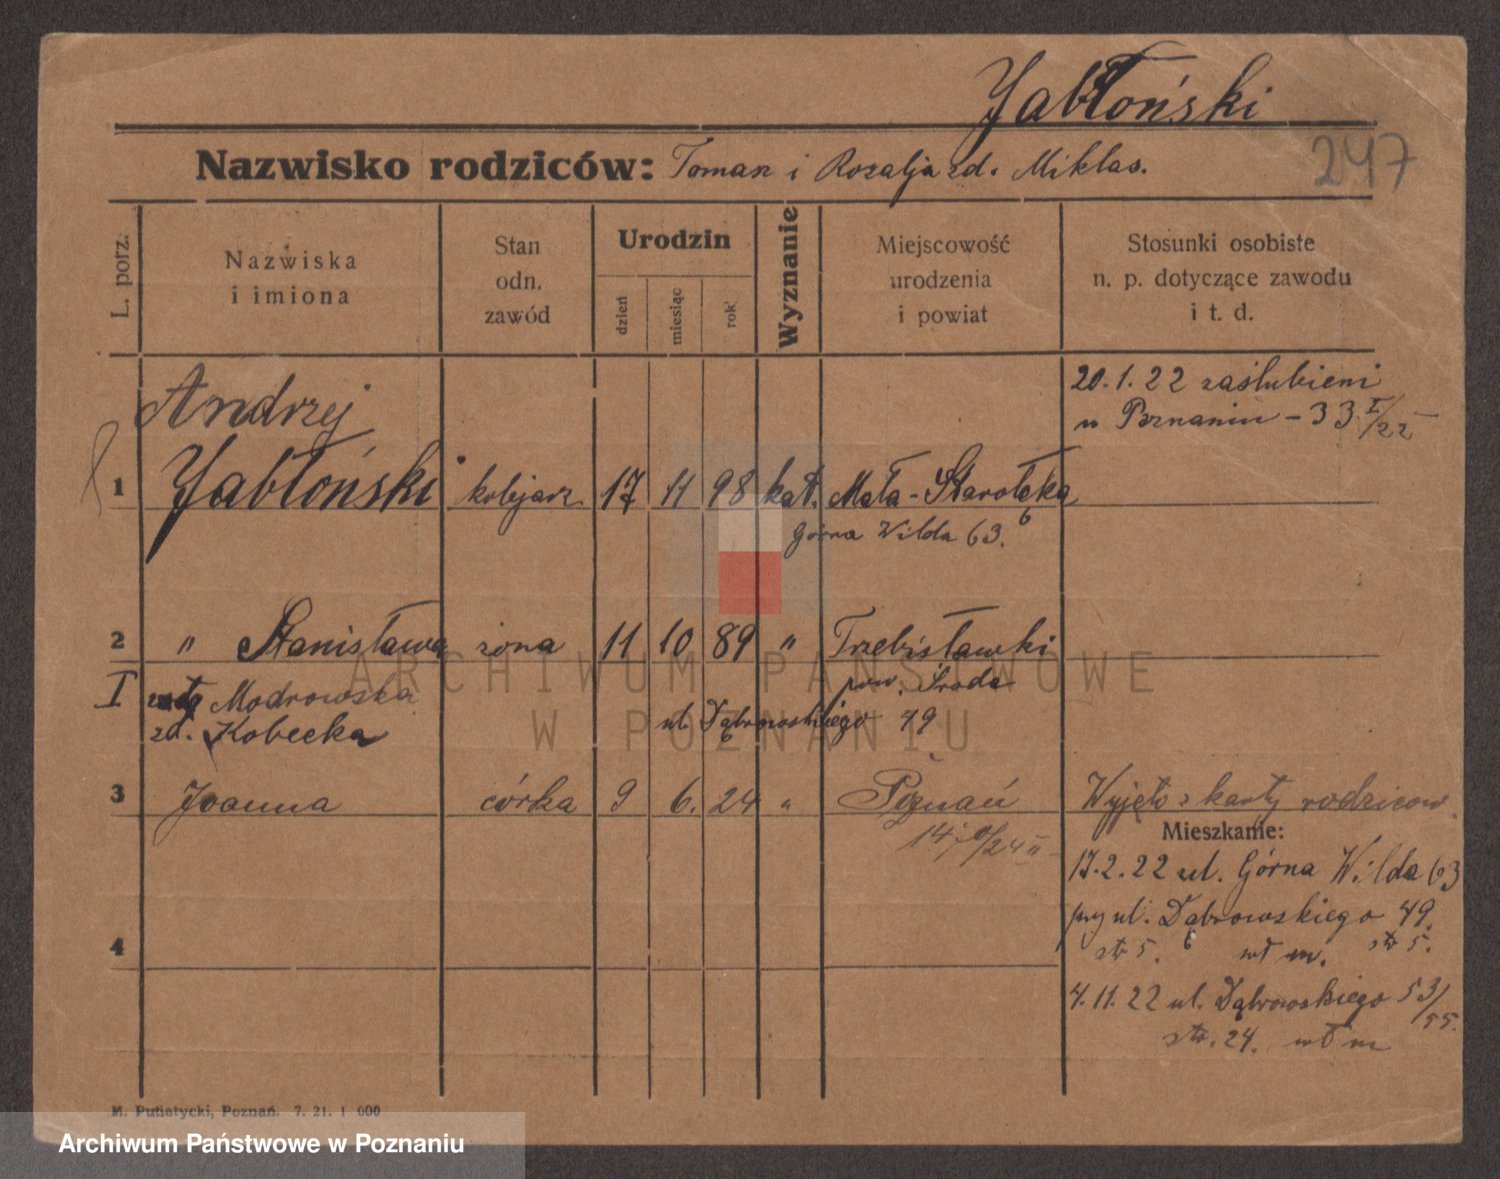 Jabłoński
Nazwisko rodziców: Tomasz i Rozalja zd. Miklas.
247
L. porz.
Nazwiska
i imiona
Stan
odn.
zawód
Urodzin
dzień
miesiąc
rok
Wyznanie
Miejscowość
urodzenia
i powiat
Stosunki osobiste
n. p. dotyczące zawodu
i t. d.
20.1.22 zaślubieni
w Poznaniu - 33 I/22
Andrzej
1 Jabłoński kolejarz 17 11 98 kat. Mała-Starołęka
Górna Wilda 63. 6
2 " Stanisława żona 11 10 89 " Trzebisławki
pow. Środa
I Modrowska
zd. Kobecka
ul. Dąbrowskiego 49
3 Joanna córka 9 6. 24 " Poznań Wyjęto z karty rodziców.
Mieszkanie:
17.2.22 ul. Górna Wilda 63
przy ul. Dąbrowskiego 49.
str 5. 6 wł m. str 5.
4
4.11.22 ul. Dąbrowskiego 53/55.
str. 24. wł m
M. Putiatycki, Poznań. 7. 21. 1 000
ARCHIWUM PAŃSTWOWE
W POZNANIU
Archiwum Państwowe w Poznaniu